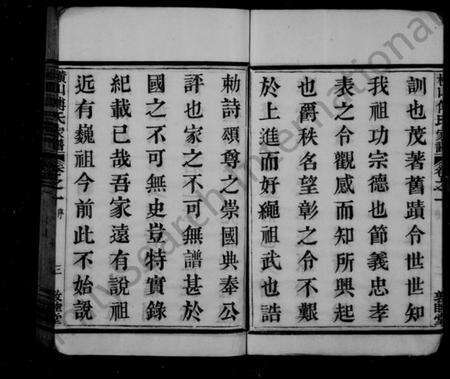 訓也茂著舊蹟令世世知
我祖功宗德也節義忠孝
表之令觀感而知所興起
也爵秩名望彰之令不艱
於上進而好繩祖武也誥
勅詩頌尊之崇國典奉公
評也家之不可無譜甚於
國之不可無史豈特實錄
紀載已哉吾家遠有說祖
近有巍祖今前此不始說
橫山傅氏家譜 卷之一 序 三